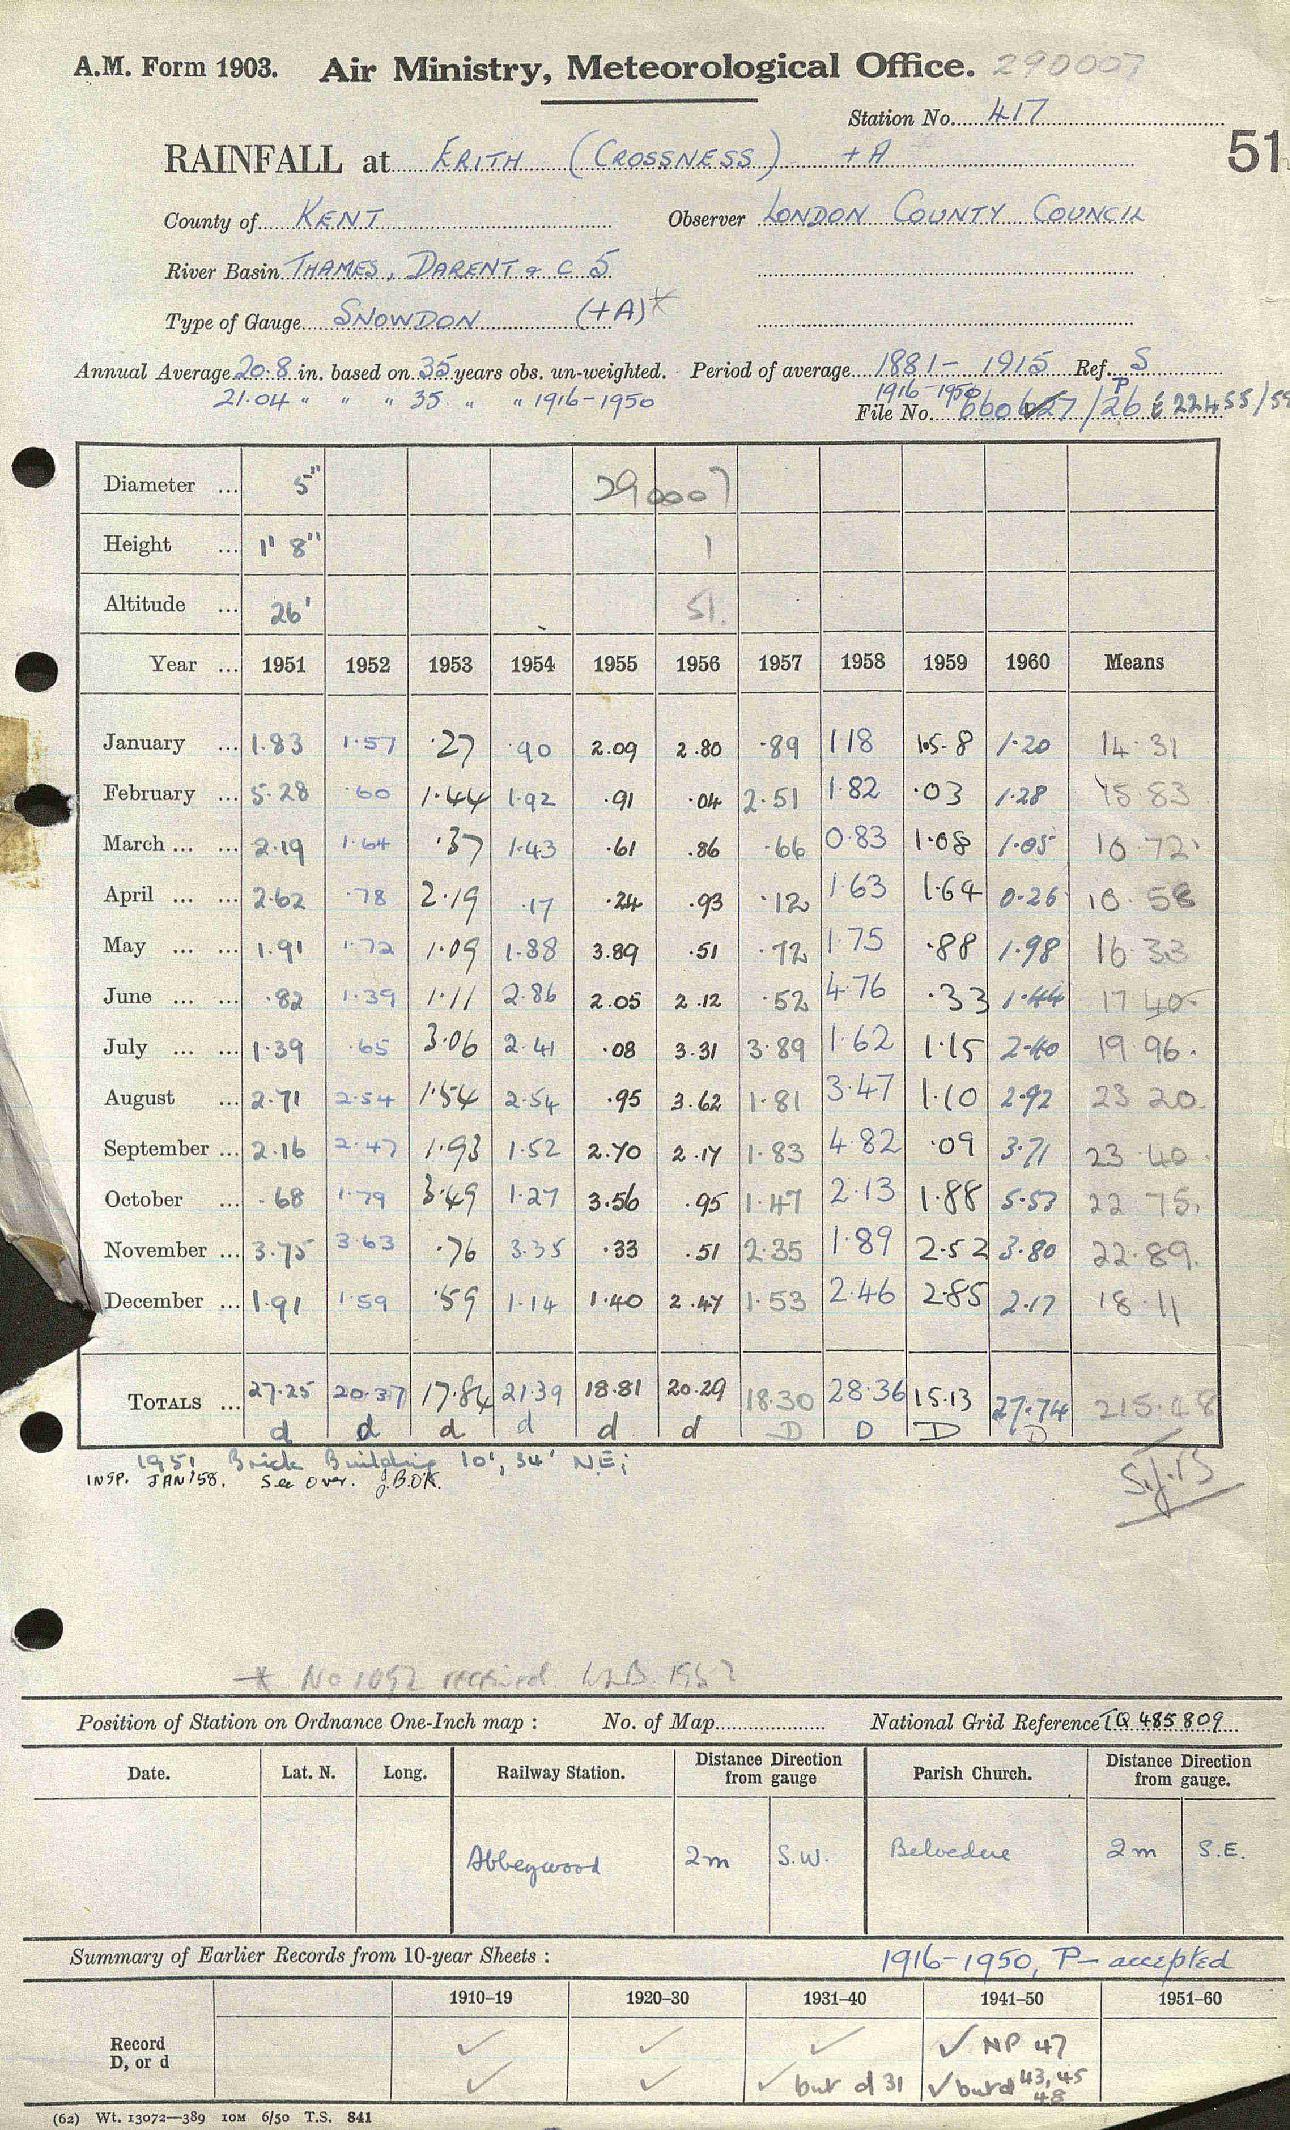 A.M. Form 1903. Air Ministry, Meteorological Office. 290007
Station No. 417
51
RAINFALL at ERITH (CROSSNESS) + A
County of KENT Observer LONDON COUNTY COUNCIL
River Basin THAMES, DARENT & C 5
Type of Gauge SNOWDON (+A)*
Annual Average 20.8 in. based on 35 years obs. un-weighted. Period of average 1881 - 1915 Ref. S
21.04 " " " 35 " " 1916-1950 1916-1950 P
File No.
Diameter ... 5" 290007
Height ... 1' 8" 1
Altitude ... 26' 51.
Year ... 1951 1952 1953 1954 1955 1956 1957 1958 1959 1960 Means
January ... 1.83 1.57 .27 .90 2.09 2.80 .89 1.18 1.58 1.20 14.31
February ... 5.28 .60 1.44 1.92 .91 .04 2.51 1.82 .03 1.28 15.83
March ... ... 2.19 1.64 .37 1.43 .61 .86 .66 0.83 1.08 1.05 10.72
April ... ... 2.62 .78 2.19 .17 .24 .93 .12 1.63 1.64 0.26 10.58
May ... ... 1.91 1.72 1.09 1.88 3.89 .51 .72 1.75 .88 1.98 16.33
June ... ... .82 1.39 1.11 2.86 2.05 2.12 .52 4.76 .33 1.44 17.40
July ... ... 1.39 .65 3.06 2.41 .08 3.31 3.89 1.62 1.15 2.40 19.96.
August ... 2.71 2.54 1.54 2.54 .95 3.62 1.81 3.47 1.10 2.92 23.20
September ... 2.16 2.47 1.93 1.52 2.70 2.17 1.83 4.82 .09 3.71 23.40
October ... .68 1.79 3.49 1.27 3.56 .95 1.47 2.13 1.88 5.53 22.75.
November ... 3.75 3.63 .76 3.35 .33 .51 2.35 1.89 2.52 3.80 22.89.
December ... 1.91 1.59 .59 1.14 1.40 2.47 1.53 2.46 2.85 2.17 18.11
TOTALS ... 27.25 20.37 17.84 21.39 18.81 20.29 18.30 28.36 15.13 27.74 215.48
d d d d d d D D D D
1951 Brick Building 10', 34' N.E;
INSP. JAN '58. See over. J.B.O.K.
* No 1092 received
Position of Station on Ordnance One-Inch map : No. of Map National Grid Reference TQ 485809
Date. Lat. N. Long. Railway Station. Distance Direction from gauge Parish Church. Distance Direction from gauge.
Abbeywood 2m S.W. Belvedere 2m S.E.
Summary of Earlier Records from 10-year Sheets : 1916-1950, P- accepted
1910–19 1920–30 1931–40 1941–50 1951–60
Record ✓ ✓ ✓ ✓ NP 47
D, or d ✓ ✓ ✓ but d 31 ✓ but d 43, 45
48
(62) Wt. 13072—389 10M 6/50 T.S. 841